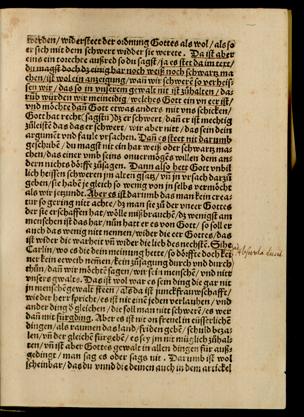 werden/ widersteet der ordnung Gottes als wol/ als so
er sich mit dem schwert widder sie werete. Da ist aber
eins ein torechte außred so du sagst/ ja es stet da im text/
du magst doch dz einig har noch weiß noch schwartz ma
chen/ ist wol ein anzeigung/ wan wir schwere so verheis-
sen wir/ das so in unserem gewalt nit ist zuhalten/ da-
rub würden wir meineidig. welches Gott ein in er ist/
und möchte dan Gott etwas anders mit uns schicken/
Gott hat recht (sagstu) dz er schwert/ dan er ist mechtig
zu leisté das das er schwert/ wir aber nitt/ das sein dein
argumét und faule ursachen. Dan es steet nit darumb
geschribé/ du magst nit ein har weiß oder schwartz ma
chen/ das einer umb seins onvermöges willen dem an-
dern nichts dörffe zusagen. Dann also hett Gott unbil
lich heissen schweren im alten gsatz/ un in ursach darzu
geben/ sie habé je gleich so wenig von in selbs vermöcht
als wir jetzundt. Aber es ist darumb das man kein crea
tur so gering nitt achte/ dz man sie zu der uneer Gottes
der sie erschaffen hat/ wölle mißbrauché/ dz wenigst am
menschen ist das har/ nun hatt er es von Gott/ so soll er
auch das wenigst nit nemen/ wider die eer Gottes/ das
ist wider die warheit un wider die lieb des nechsté. Sihe
Carlin/ wo es die dein meinung hette/ so dörffte doch kei
ner kein eewerb nemen/ kein zusagung durch und durch
thun/ dan wir möchté sagen/ wir sei menschē/ und nitt
unsers gwalts. Das ist wol war es sein ding die gar nit
in menschē gewalt steen/ als da ist junckfrawschafft/
wie der herr spricht/ es ist nit eine jeden verlauhen/ und
ander ding d gleichen/ die soll man nitt schweré/ es wer
dan mit fürgding. Aber es ist nit on frenel in eüsserliche
dingen/ als raumen das land/ friden gebé/ schuld bezal
len/ un der gleiche fürgebé/ es sey jm nit müglich zuhal
ten/ un ist aber Gottes gewalt in allen dingen für auß
gedingt/ man sag es oder sags nit. Darumb ist wol
scheinbar/ das du unnd die deinen auch in dem artickel